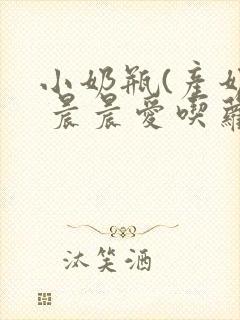 小奶瓶(產
晨晨愛喫
沐笑酒